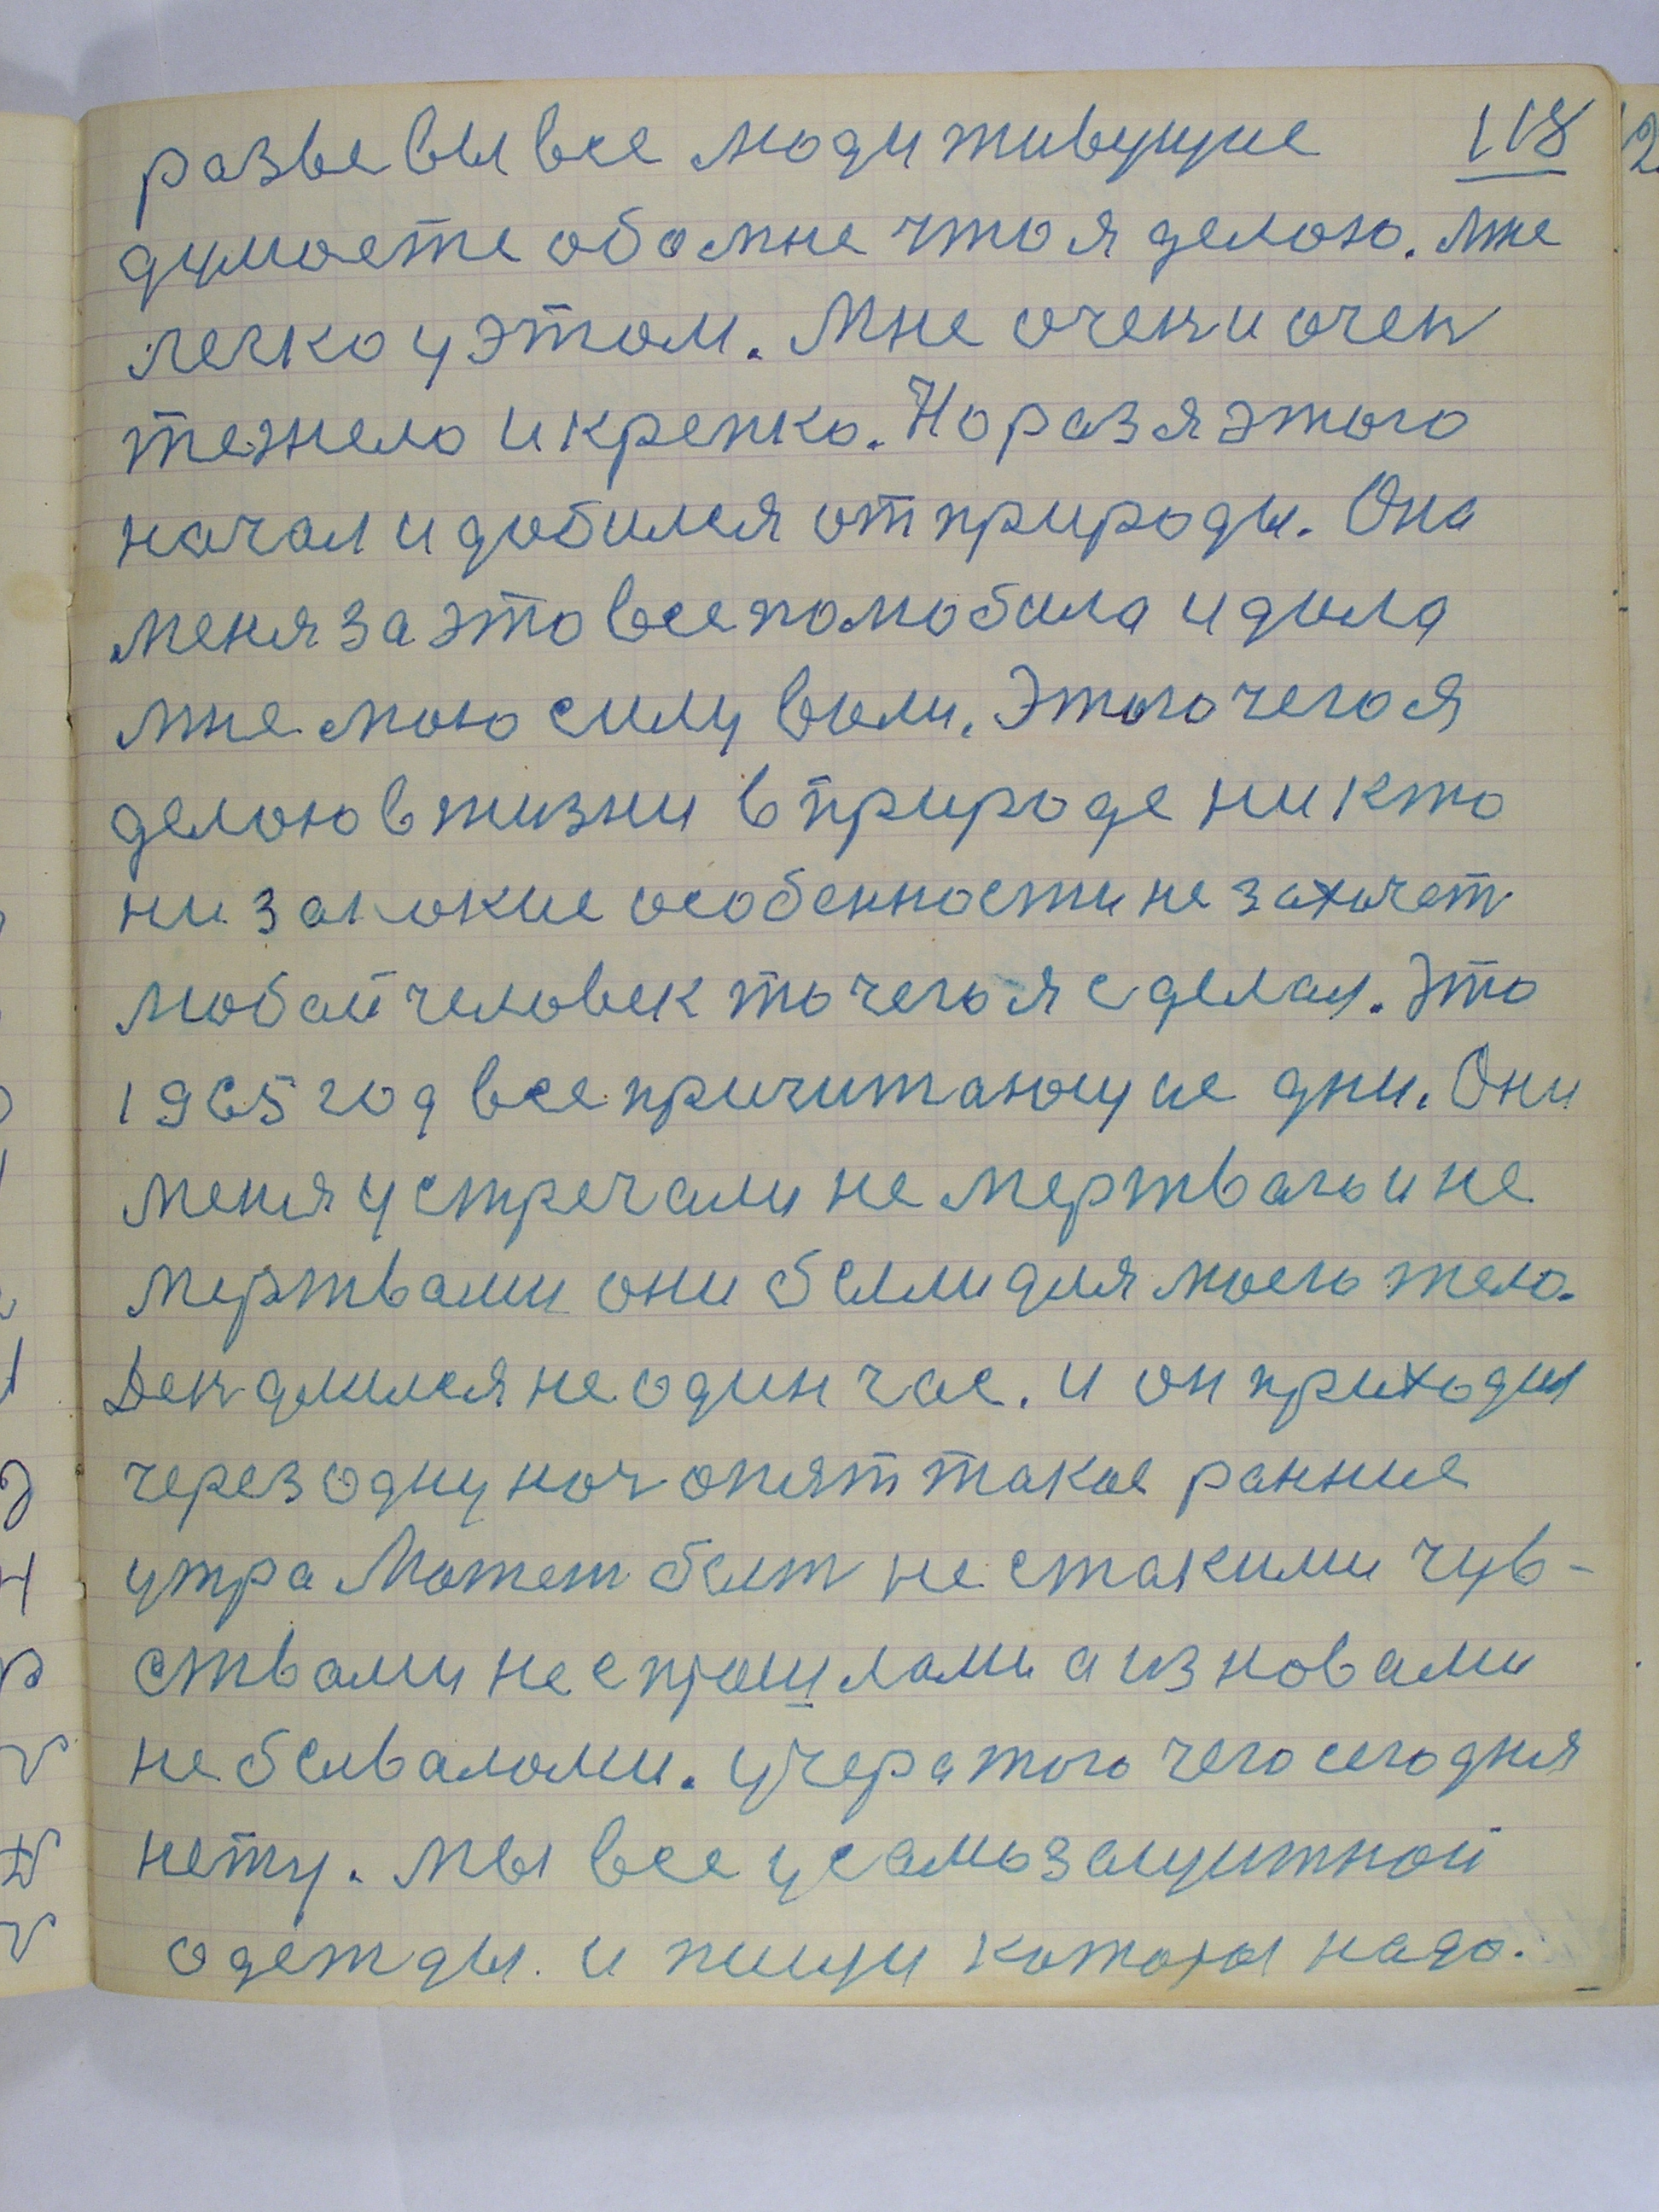 118
разве вы все люди живущие
думаете обо мне что я делаю. мне
легко у этом. Мне очен и очен
тежело и крепко. Но раз я этого
начал и добился от природы. Она
меня за это все полюбила и дала
мне мою силу воли. Этого чего я
делаю в жизни в природе ни кто
ни за какие особенности не захочет
любой человек то чего я сделал. Это
1965 год все причитающие дни. Они
меня устречали не мертваго и не
мертвами они были для моего тела.
Ден длился не один час. и он приходил
через одну ноч опят такое ранние
утра Может быт не с такими чув-
ствами не с прошлами а из новами
не бывалами. учера того чего сегодня
нету. мы все у самозащитной
одежды. и пищи которы надо.